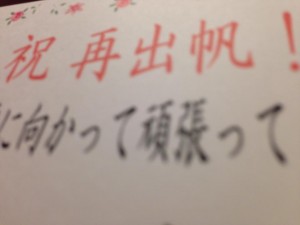 祝 再出帆！
に向かって頑張って